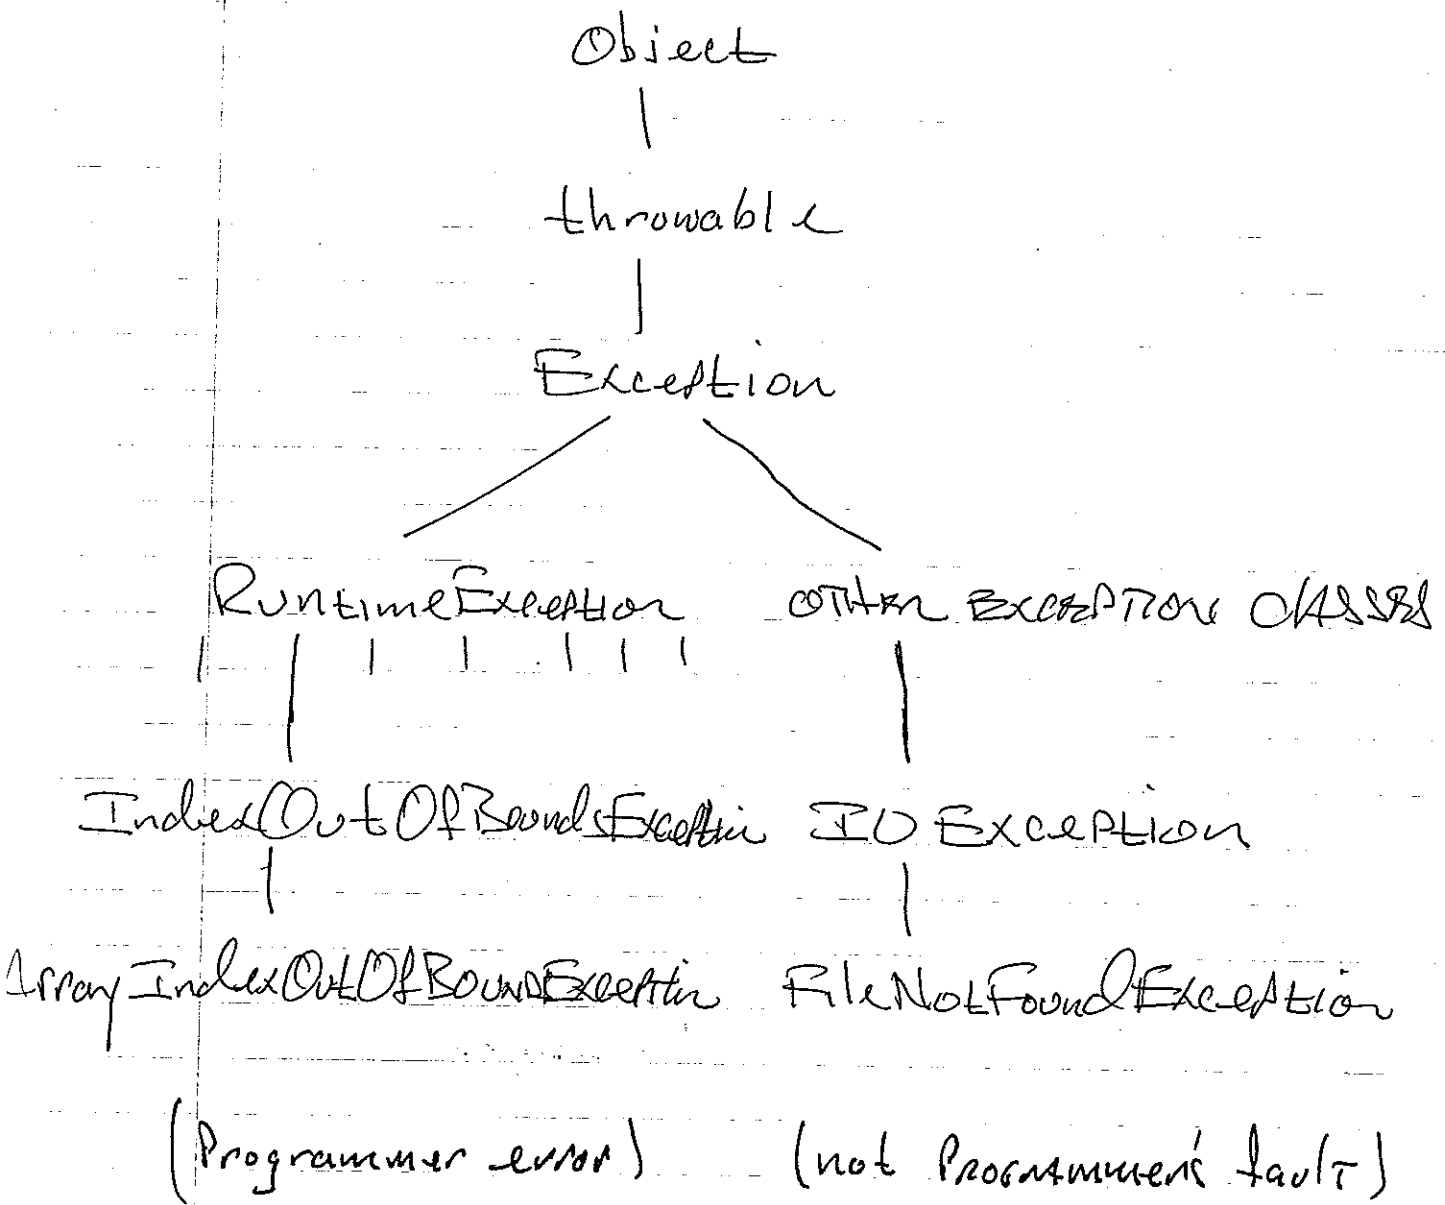 Object
throwable
Exception
RuntimeException OTHER EXCEPTION CLASSES
IndexOutOfBoundsException IOException
ArrayIndexOutOfBoundsException FileNotFoundException
(Programmer error) (not Programmer's fault)